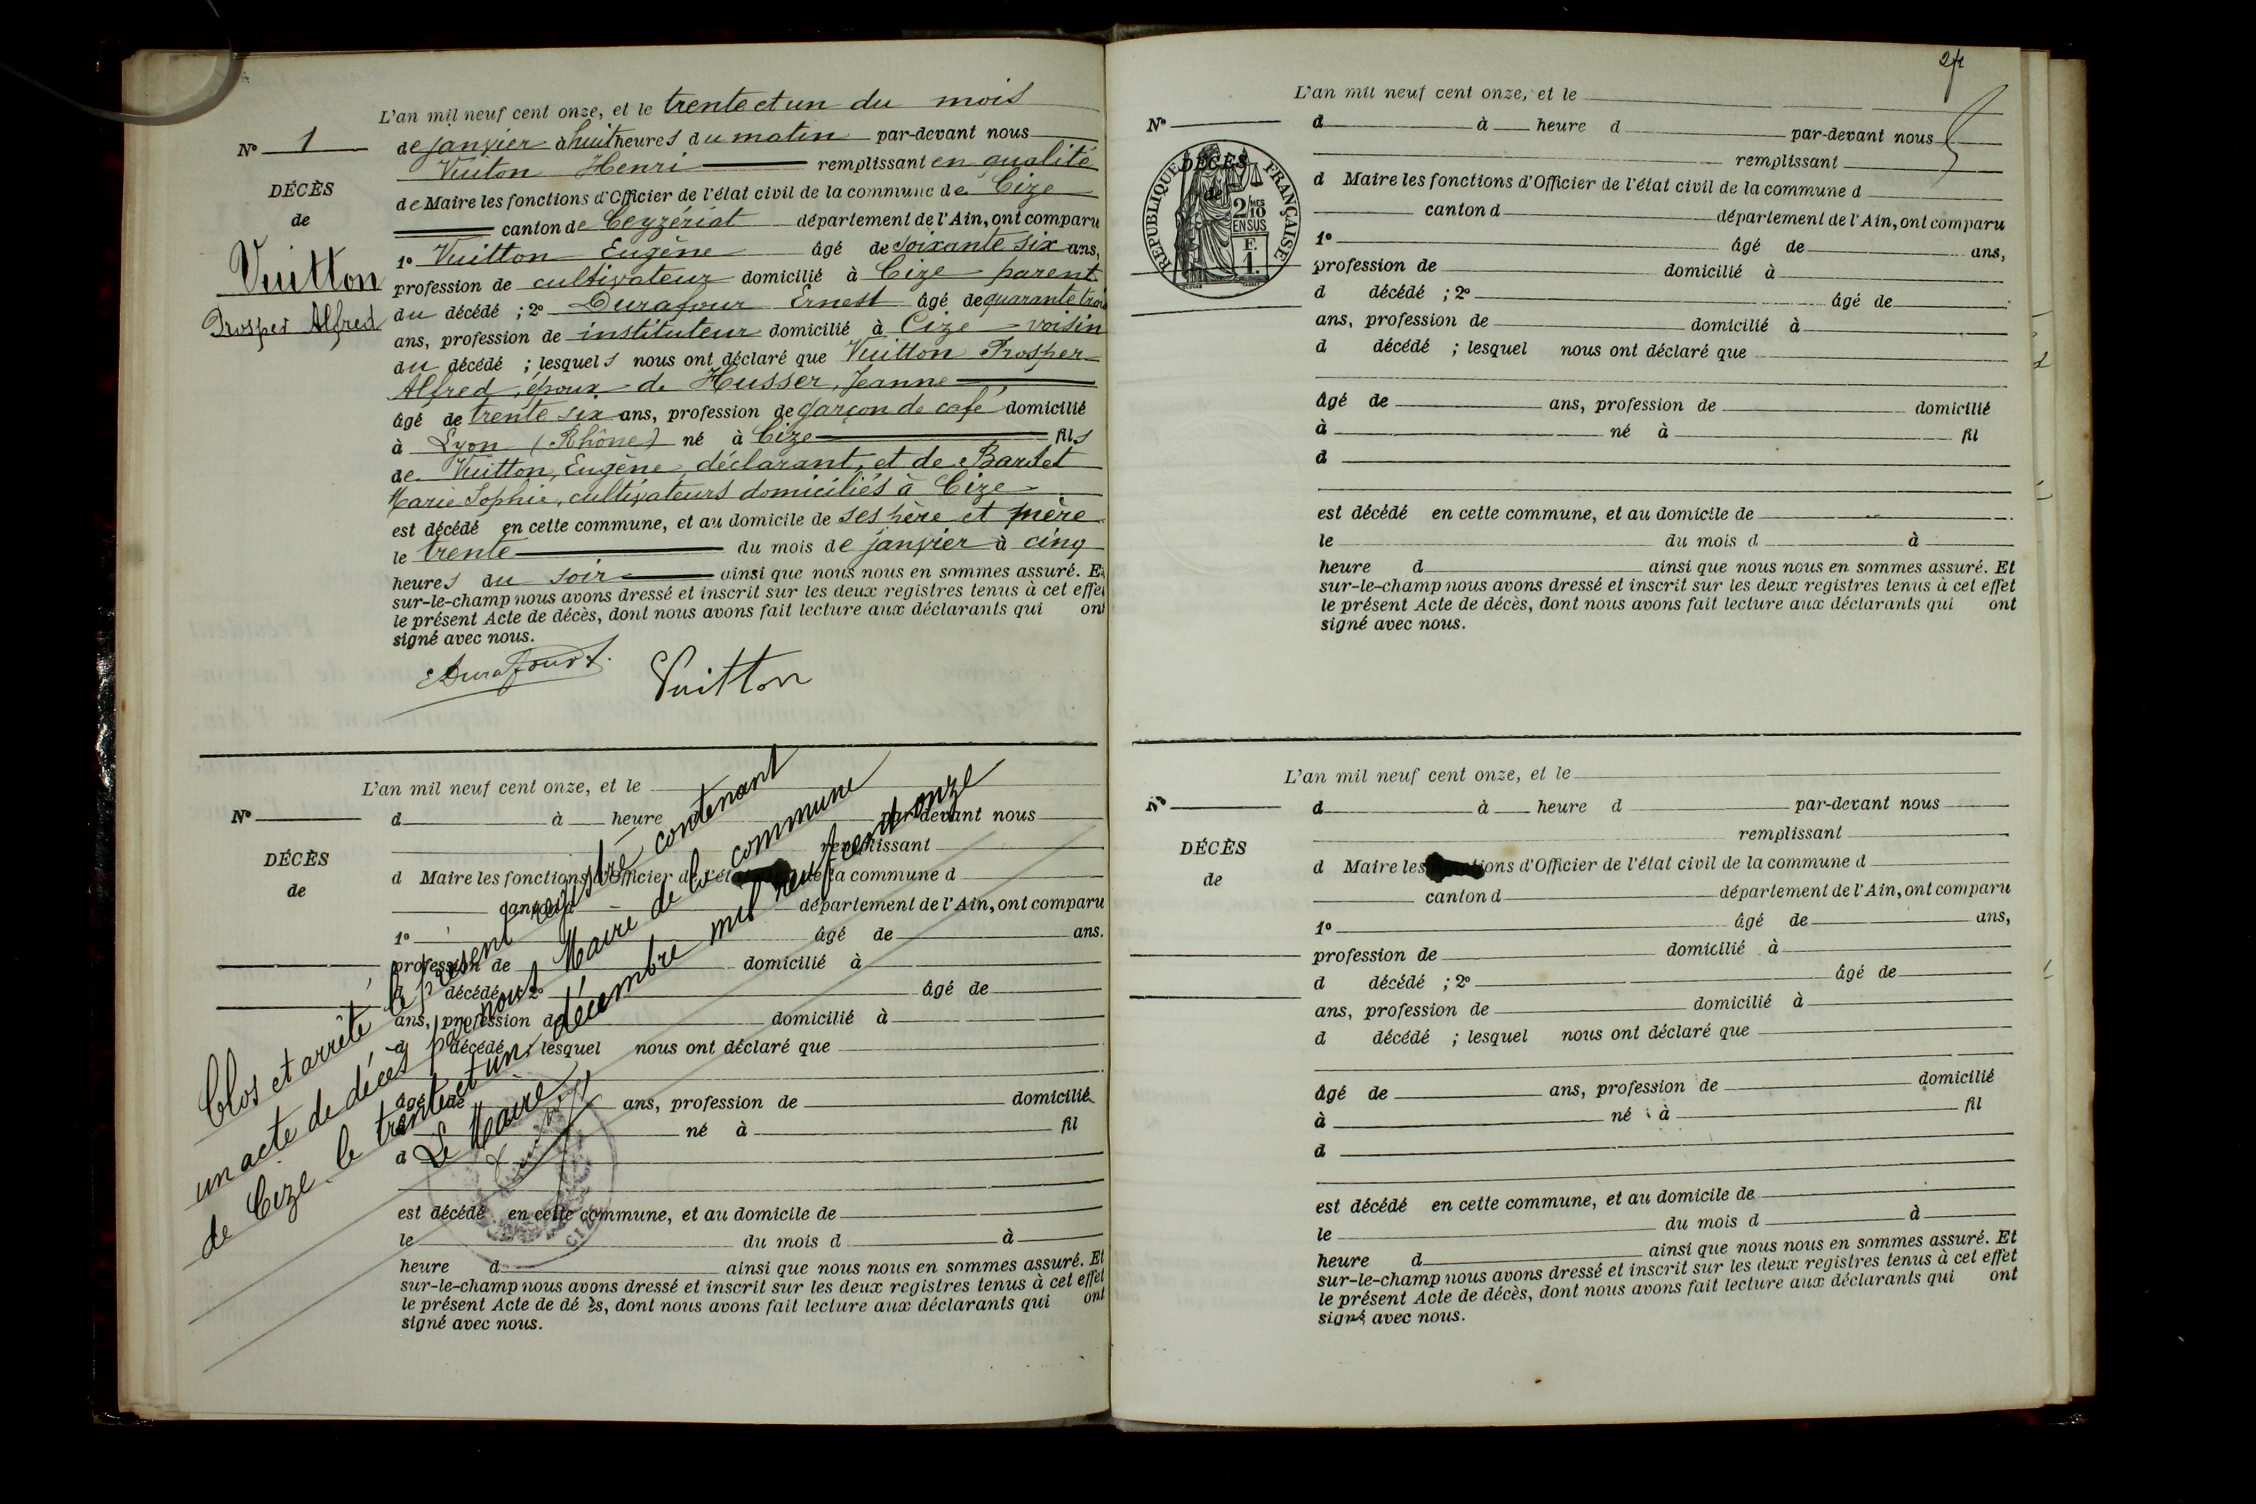 L'an mil neuf cent onze, et le trente et un du mois
N° 1
de janvier à huit heures du matin par-devant nous
Vuiton Henri remplissant en qualité
DÉCÈS
de Maire les fonctions d'Officier de l'état civil de la commune de Cize
de
canton de Ceyzériat département de l'Ain, ont comparu
Vuitton
Prosper Alfred
1° Vuitton Eugène âgé de soixante six ans,
profession de cultivateur domicilié à Cize parent
du décédé ; 2° Durafour Ernest âgé de quarante trois
ans, profession de instituteur domicilié à Cize voisin
du décédé ; lesquels nous ont déclaré que Vuitton Prosper
Alfred, époux de Husser, Jeanne
âgé de trente six ans, profession de garçon de café domicilié
à Lyon (Rhône) né à Cize fils
de Vuitton, Eugène, déclarant, et de Bardet
Marie Sophie, cultivateurs domiciliés à Cize
est décédé en cette commune, et au domicile de ses père et mère
le trente du mois de janvier à cinq
heures du soir ainsi que nous nous en sommes assuré. Et
sur-le-champ nous avons dressé et inscrit sur les deux registres tenus à cet effet
le présent Acte de décès, dont nous avons fait lecture aux déclarants qui ont
signé avec nous.
Durafour E. Vuitton
L'an mil neuf cent onze, et le
N°
d à heure par-devant nous
remplissant
DÉCÈS
d Maire les fonctions d'Officier de l'état de la commune d
de
canton d département de l'Ain, ont comparu
1° âgé de ans.
profession de domicilié à
d décédé ; 2° âgé de
ans, profession de domicilié à
d décédé ; lesquel nous ont déclaré que
âgé de ans, profession de domicilié
né à fil
d
est décédé en cette commune, et au domicile de
le du mois d à
heure d ainsi que nous nous en sommes assuré. Et
sur-le-champ nous avons dressé et inscrit sur les deux registres tenus à cet effet
le présent Acte de dé ès, dont nous avons fait lecture aux déclarants qui ont
signé avec nous.
Clos et arrêté le présent registre contenant
un acte de décès par nous Maire de la commune
de Cize le trente et un décembre mil neuf cent onze
Le Maire
CIZE
L'an mil neuf cent onze, et le
N°
d à heure d par-devant nous
remplissant
DÉCÈS
de
RÉPUBLIQUE FRANÇAISE
2/10MES
EN SUS
F.
1.
d Maire les fonctions d'Officier de l'état civil de la commune d
canton d département de l'Ain, ont comparu
1° âgé de ans,
profession de domicilié à
d décédé ; 2° âgé de
ans, profession de domicilié à
d décédé ; lesquel nous ont déclaré que
âgé de ans, profession de domicilié
à né à fil
d
est décédé en cette commune, et au domicile de
le du mois d à
heure d ainsi que nous nous en sommes assuré. Et
sur-le-champ nous avons dressé et inscrit sur les deux registres tenus à cet effet
le présent Acte de décès, dont nous avons fait lecture aux déclarants qui ont
signé avec nous.
L'an mil neuf cent onze, et le
N°
d à heure d par-devant nous
remplissant
DÉCÈS
d Maire les fonctions d'Officier de l'état civil de la commune d
de
canton d département de l'Ain, ont comparu
1° âgé de ans,
profession de domicilié à
d décédé ; 2° âgé de
ans, profession de domicilié à
d décédé ; lesquel nous ont déclaré que
âgé de ans, profession de domicilié
à né à fil
d
est décédé en cette commune, et au domicile de
le du mois d à
heure d ainsi que nous nous en sommes assuré. Et
sur-le-champ nous avons dressé et inscrit sur les deux registres tenus à cet effet
le présent Acte de décès, dont nous avons fait lecture aux déclarants qui ont
signé avec nous.